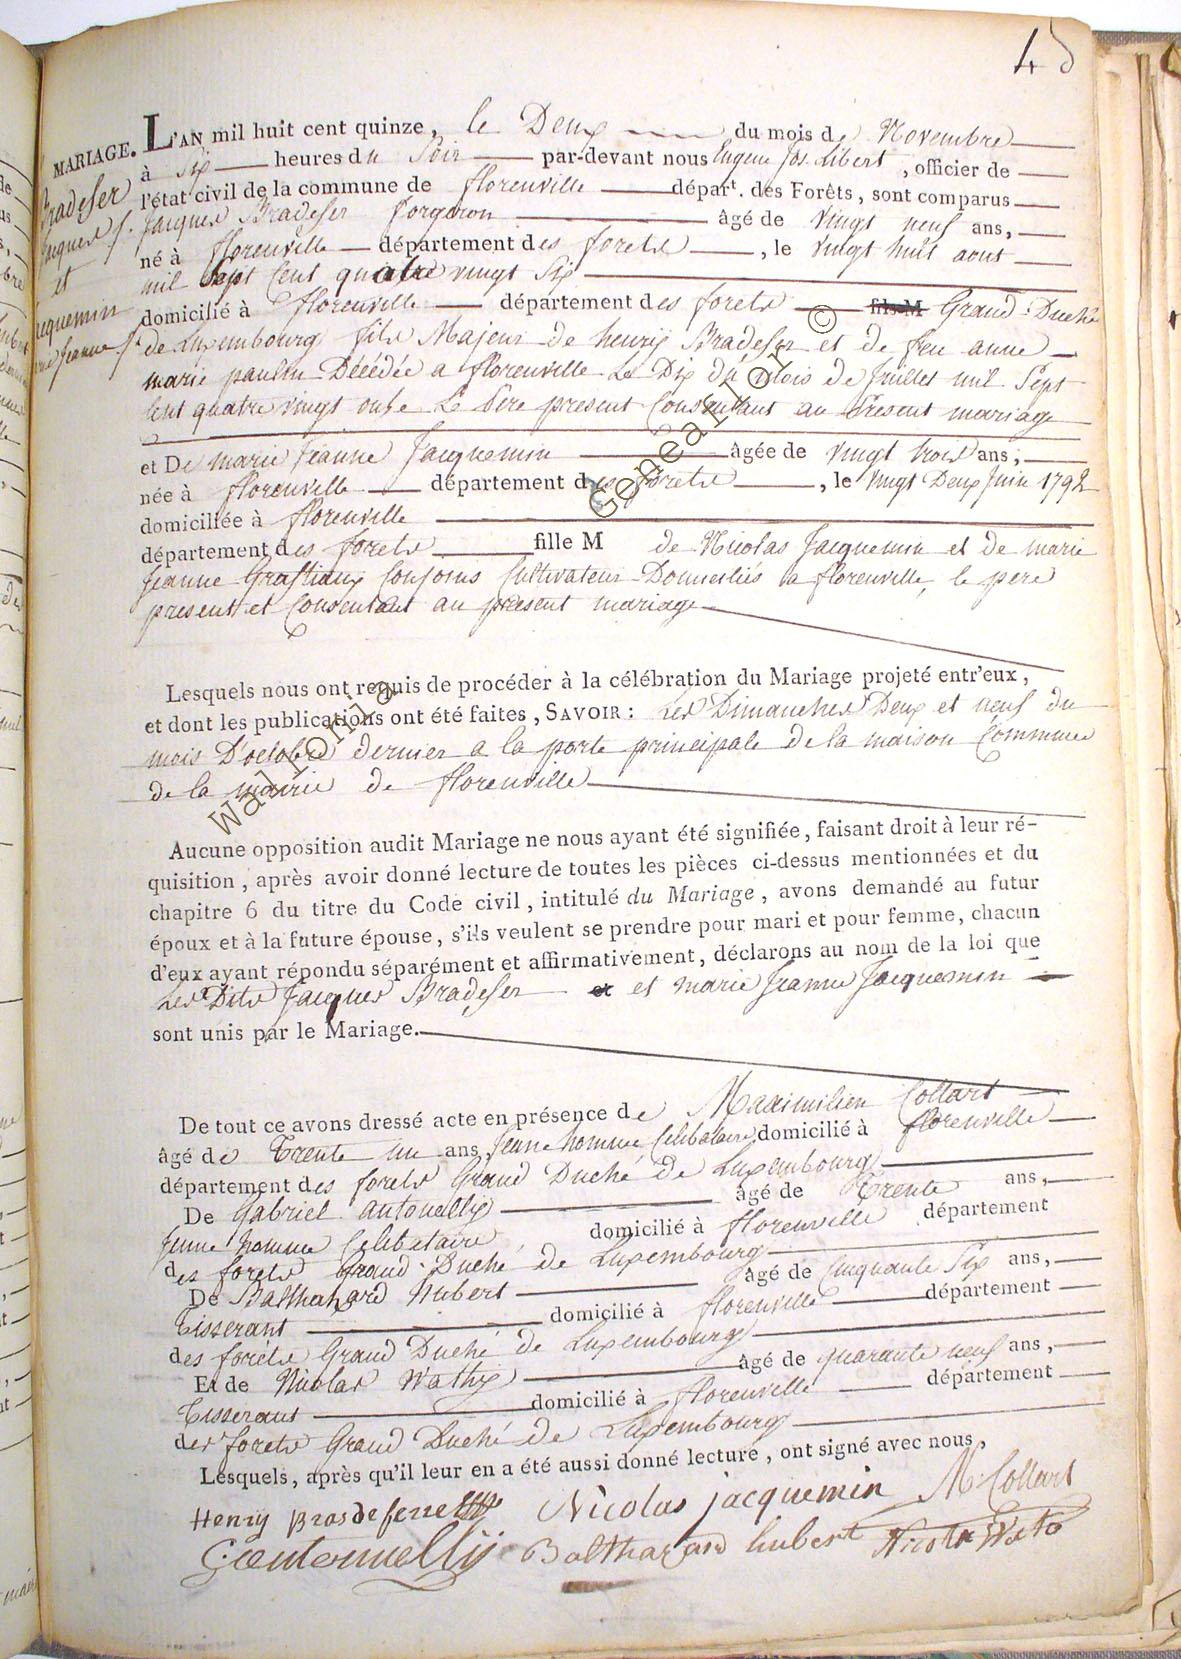 48
MARIAGE. L'AN mil huit cent quinze, le Deux du mois de Novembre
à Six heures du Soir par-devant nous Eugene Jos. Libert, officier de
l'état civil de la commune de florenville départ. des Forêts, sont comparus
Jacques Bradefer forgeron âgé de vingt neuf ans,
né à florenville département des forets, le vingt huit aout
mil sept Cent quatre vingt Six
domicilié à florenville département des forets fils M Grand-Duché
de Luxembourg fils Majeur de henry Bradefer et de feu anne
marie paulin Décédée a florenville Le Dix du mois de Juillet mil Sept
Cent quatre vingt onze Le Père present Consentant au Present mariage
Bradefer
Jacques
et
Jacquemin
marie Jeanne
et De marie Jeanne Jacquemin âgée de vingt trois ans,
née à florenville département des forets, le vingt Deux Juin 1792
domiciliée à florenville
département des forets fille M de Nicolas Jacquemin et de marie
Jeanne Grastiaux Conjoins Cultivateur Domiciliés a florenville, le pere
present et Consentant au present mariage
Lesquels nous ont requis de procéder à la célébration du Mariage projeté entr'eux,
et dont les publications ont été faites, SAVOIR: Les Dimanches Deux et neuf du
mois D'octobre dernier a la porte principale de la maison Commune
de la mairie de florenville
Aucune opposition audit Mariage ne nous ayant été signifiée, faisant droit à leur ré-
quisition, après avoir donné lecture de toutes les pièces ci-dessus mentionnées et du
chapitre 6 du titre du Code civil, intitulé du Mariage, avons demandé au futur
époux et à la future épouse, s'ils veulent se prendre pour mari et pour femme, chacun
d'eux ayant répondu séparément et affirmativement, déclarons au nom de la loi que
Les Dits Jacques Bradefer et et marie Jeanne Jacquemin
sont unis par le Mariage.
De tout ce avons dressé acte en présence de Maximilien Collart
âgé de Trente un ans Jeune homme Celibataire domicilié à florenville
département des forets Grand Duché de Luxembourg
De Gabriel antonelly âgé de Trente ans,
Jeune homme Celibataire domicilié à florenville département
des forets Grand-Duché de Luxembourg
De Balthazard hubert âgé de Cinquante Six ans,
Tisserant domicilié à florenville département
des forèts Grand Duché de Luxembourg
Et de Nicolas Wathy âgé de quarante neuf ans,
Tisserant domicilié à florenville département
des forets Grand Duché de Luxembourg
Lesquels, après qu'il leur en a été aussi donné lecture, ont signé avec nous,
Henry Brasdeferre Nicolas jacquemin M Collart
G antonnelly Balthazard hubert Nicola Wato
Wallonia © Geneaflor